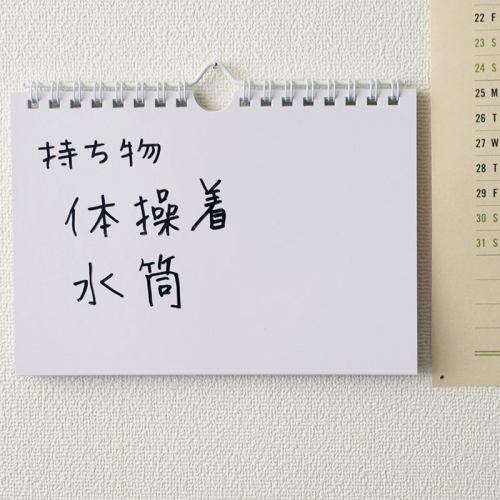 持ち物
体操着
水筒
22 F
23 S
24 S
25 M
26 T
27 W
28 T
29 F
30 S
31 S